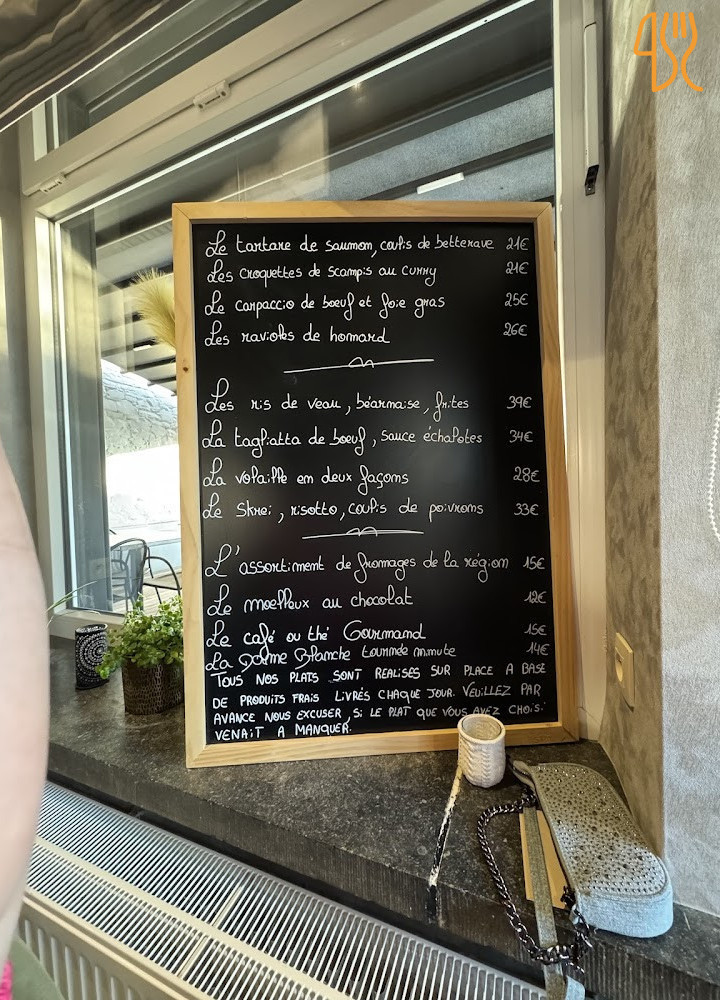 Le tartare de saumon, coulis de betterave 21€
Les croquettes de scampis au curry 21€
Le carpaccio de bœuf et foie gras 25€
Les ravioles de homard 26€
Les ris de veau, béarnaise, frites 39€
La tagliatta de bœuf, sauce échalotes 34€
La volaille en deux façons 28€
Le Skrei, risotto, coulis de poivrons 33€
L'assortiment de fromages de la région 15€
Le moelleux au chocolat 12€
Le café ou thé Gourmand 15€
La Dame Blanche tournée minute 14€
TOUS NOS PLATS SONT REALISES SUR PLACE A BASE
DE PRODUITS FRAIS LIVRÉS CHAQUE JOUR. VEUILLEZ PAR
AVANCE NOUS EXCUSER, SI LE PLAT QUE VOUS AVEZ CHOISI
VENAIT A MANQUER.